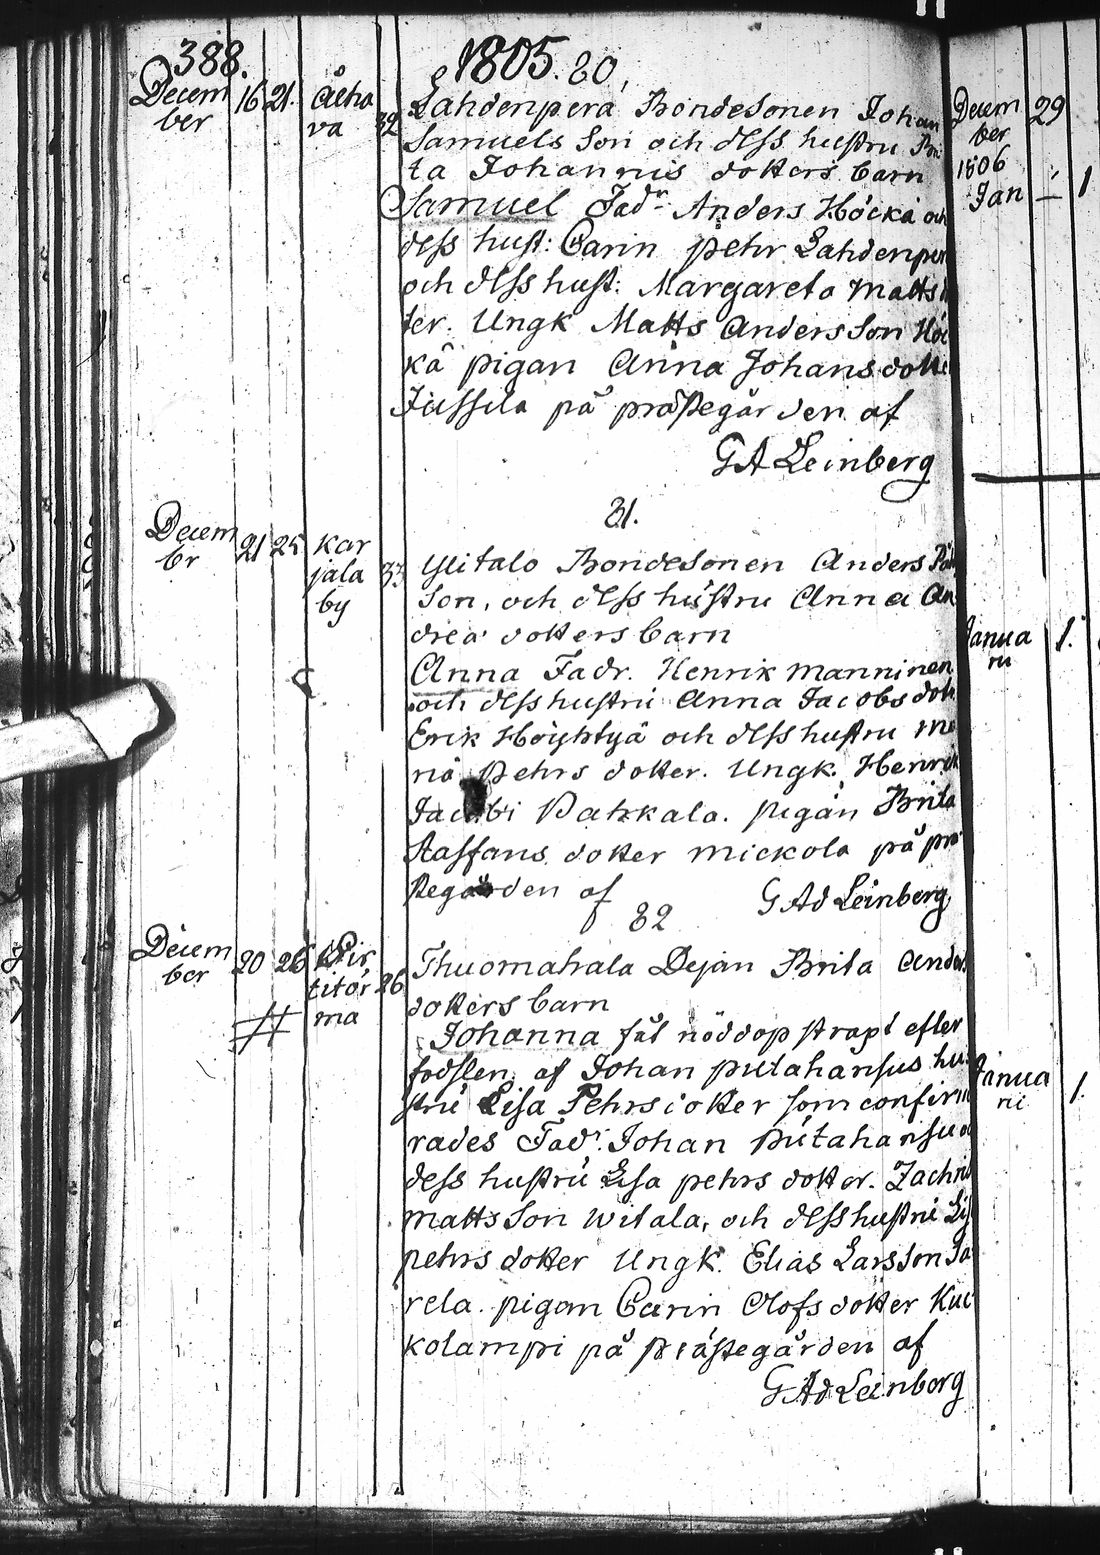 388.
1805. 80,
Decem 16 21. Alha
ber va 32
Lahdenperä Bondesonen Johan
Samuels Son och dess hustru Bri
ta Johannis dotters barn
Samuel Fadr Anders Höckä och
dess hust: Carin pehr Lahdenper
och dess hust: Margareta Matts
ter. Ungk Matts Andersson Höc
kä pigan Anna Johans dotte
Jussila på prästegården af
GA Leinberg
81.
Decem 21 25 Kar
br jala 33
by
Ylitalo Bondesonen Anders
Son, och dess hustru Anna An
drea dotters barn
Anna Fadr. Henrik Manninen
och dess hustru Anna Jacobs dott
Erik Höyhtyä och dess hustru
na Pehrs dotter. Ungk. Henrik
Jacobi Pahkala. pigan Brita
Staffans dotter Mickola på prä
stegården af
GAd Leinberg
82
Decem 20 26 Pir
ber titör 26
ma
Thuomahala Dejan Brita Anders
dotters barn
Johanna fåt nöddop strapt efter
fodslen af Johan putahansus hu
stru Lisa Pehrs dotter som confirm
rades Fadr: Johan Putahansu o
dess hustru Lisa pehrs dotter. Zachris
Matts Son Witala, och dess hustru Lis
pehrs dotter Ungk. Elias Larsson Ja
rela. pigan Carin Olofs dotter Kuc
kolampi på prästegården af
GAd Leinberg
Decem 29
ber
1806
Jan 1
Janua 1.
rii
Janua 1.
rii